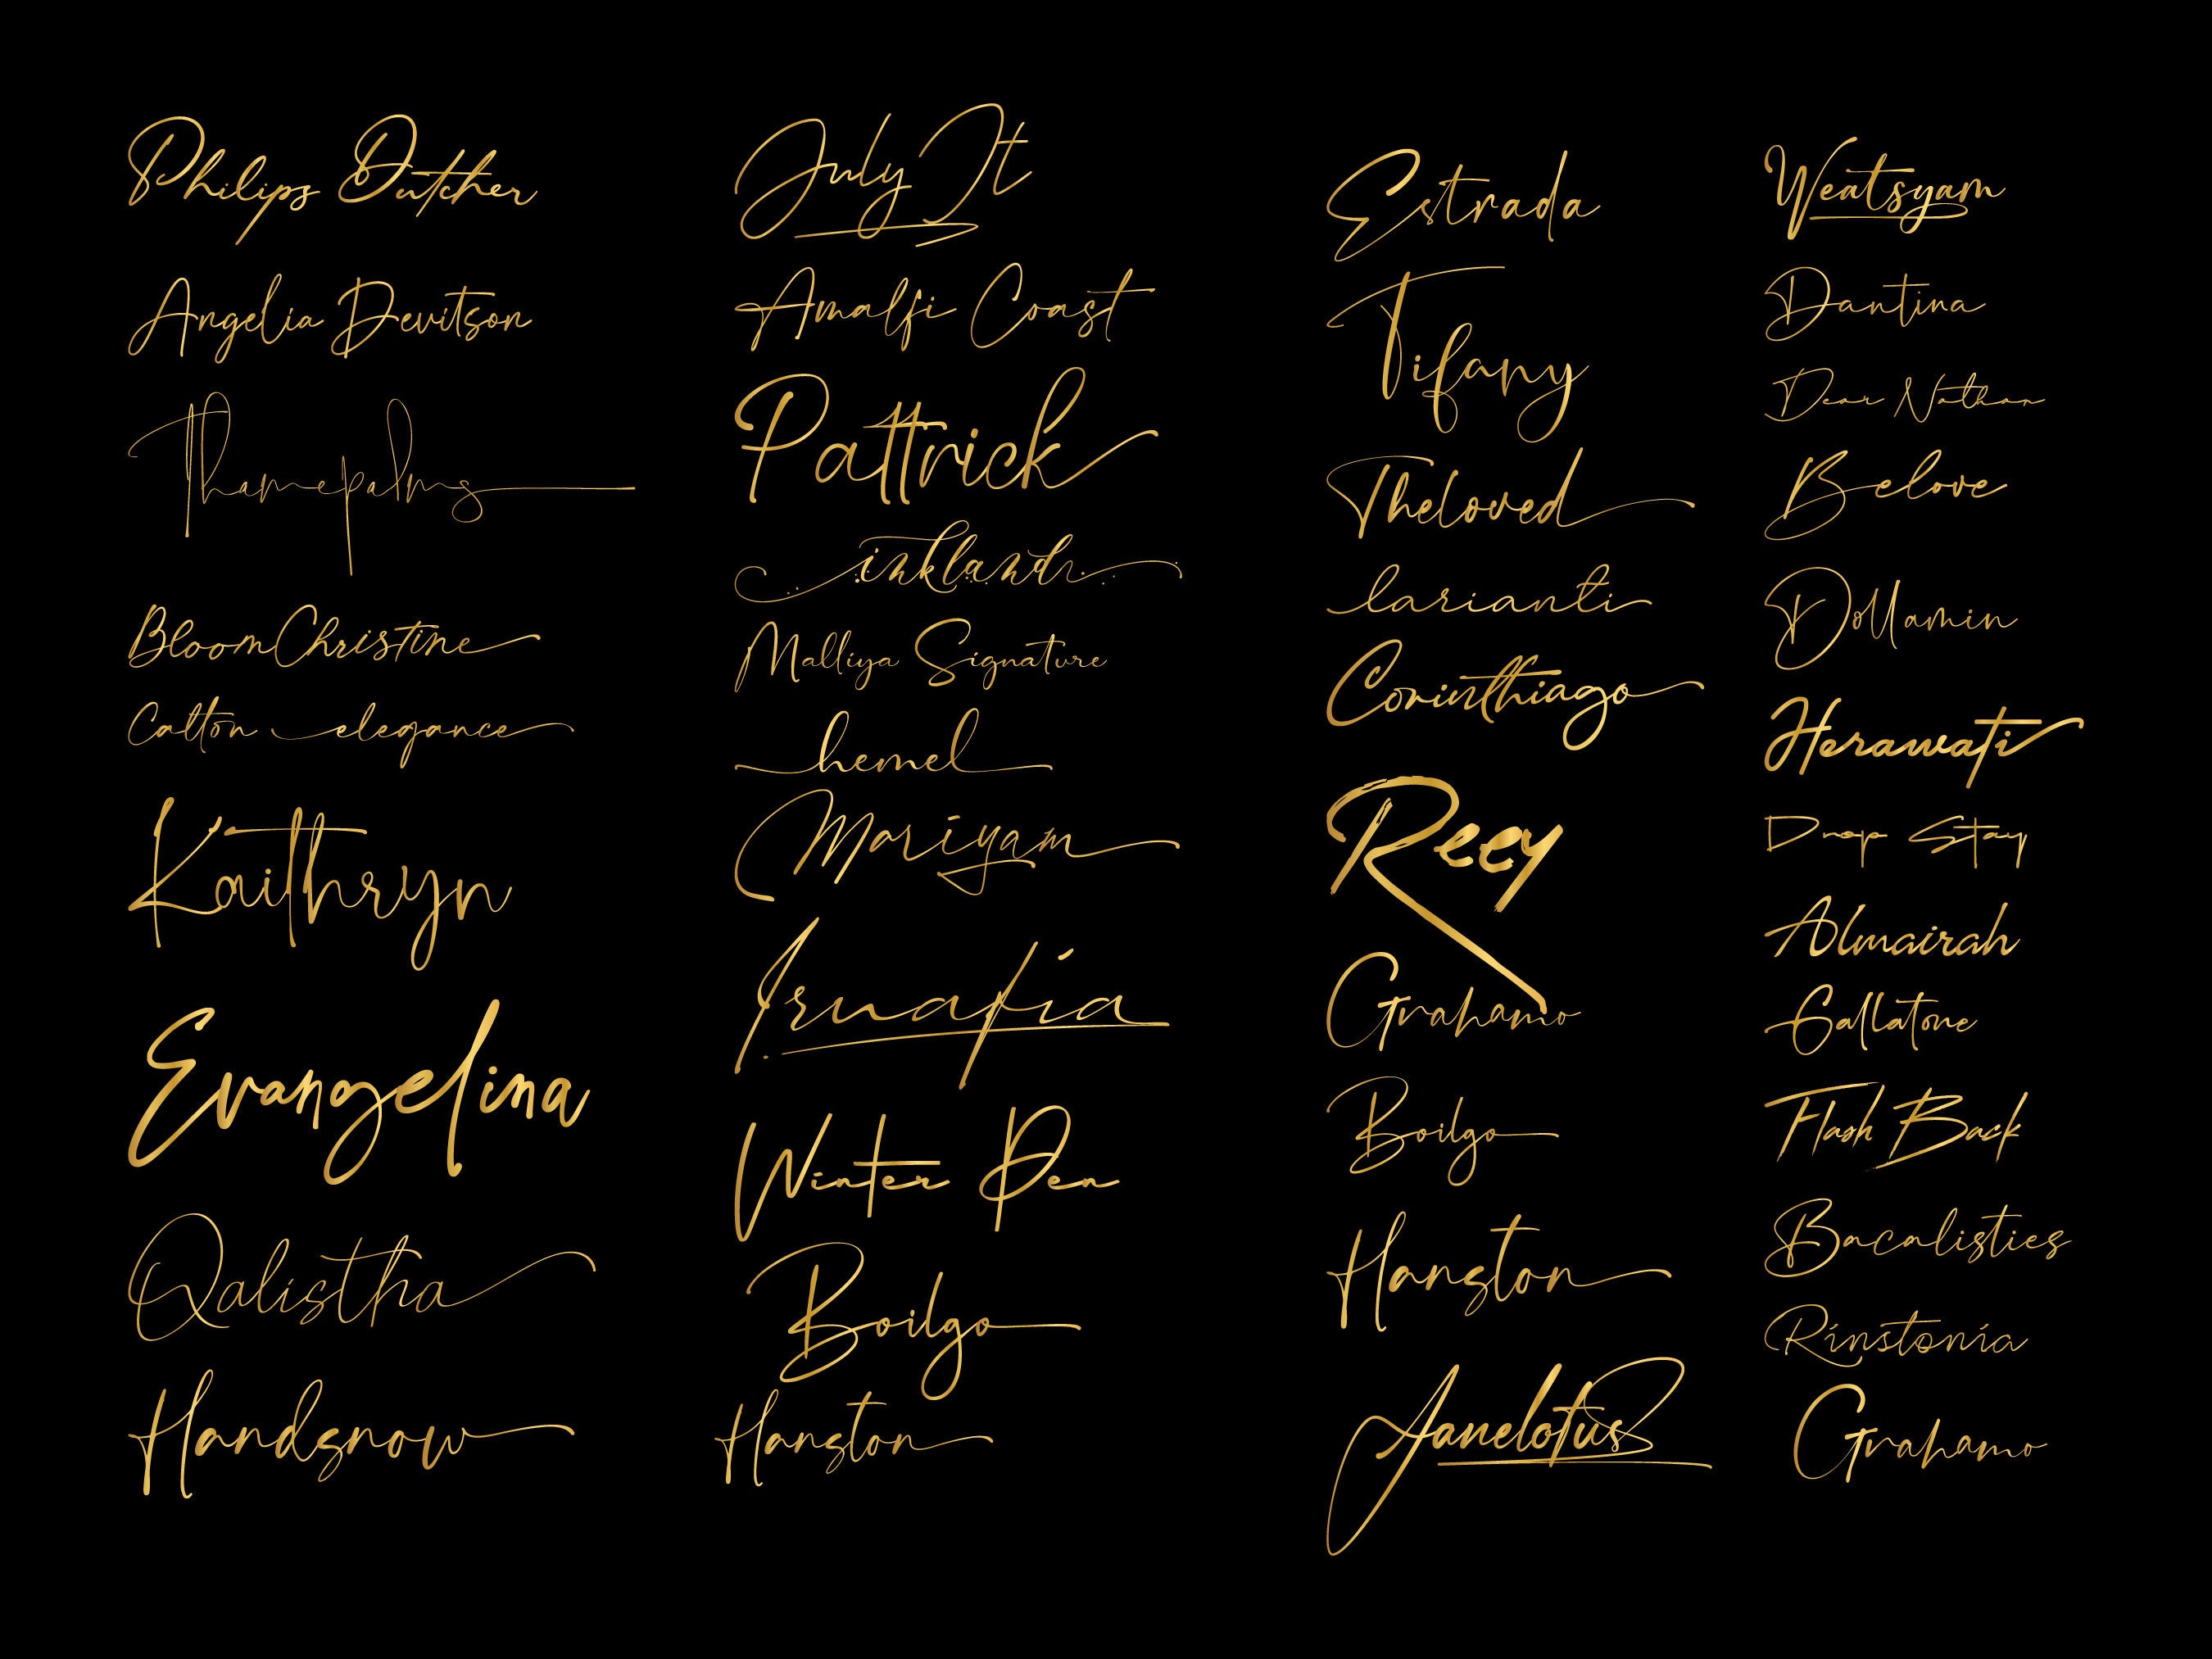 Philips Dutcher
Angelia Devitson
Thamepalms
Bloom Christine
Calton elegance
Kaithryn
Evangelina
Qalistha
Handsnow
July It
Amalfi Coast
Pattrick
inklandr
Malliya Signature
hemel
Mariyam
Irnafia
Winter Pen
Boilgo
Hanston
Estrada
Tifany
Theloved
larianti
Corinthiago
Reey
Grahamo
Boilgo
Hanston
Janelotus
Weatsyam
Dantina
Dear Nathan
Belove
Dollamin
Herawati
Drop Stay
Almairah
Gallatone
Flash Back
Bacalisties
Rinstonia
Grahamo